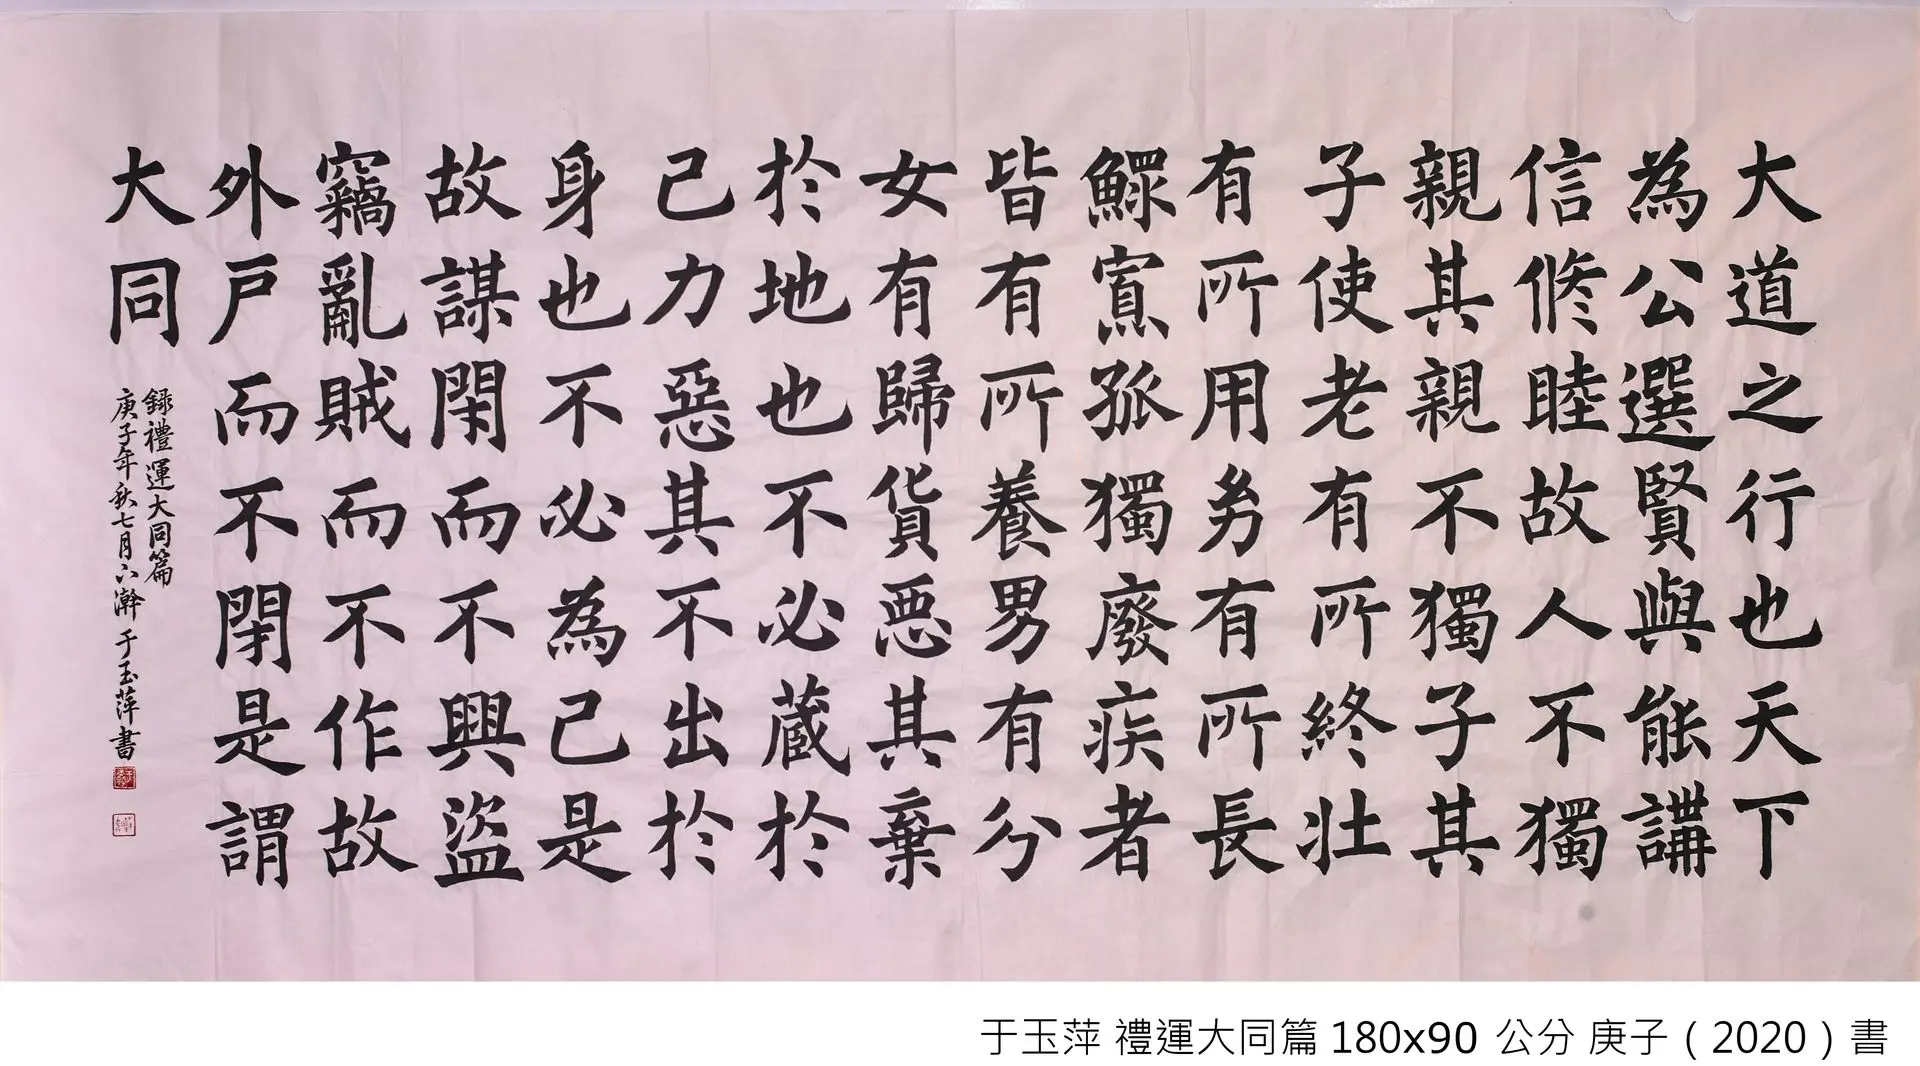 大道之行也天下
為公選賢與能講
信修睦故人不獨
親其親不獨子其
子使老有所終壯
有所用㓜有所長
鰥寡孤獨廢疾者
皆有所養男有分
女有歸貨悪其棄
於地也不必蔵於
己力惡其不出於
身也不必為己是
故謀閇而不興盜
竊亂賊而不作故
外戶而不閇是謂
大同
録禮運大同篇
庚子年秋七月下澣 于玉萍書
于玉萍 禮運大同篇 180x90 公分 庚子（2020）書